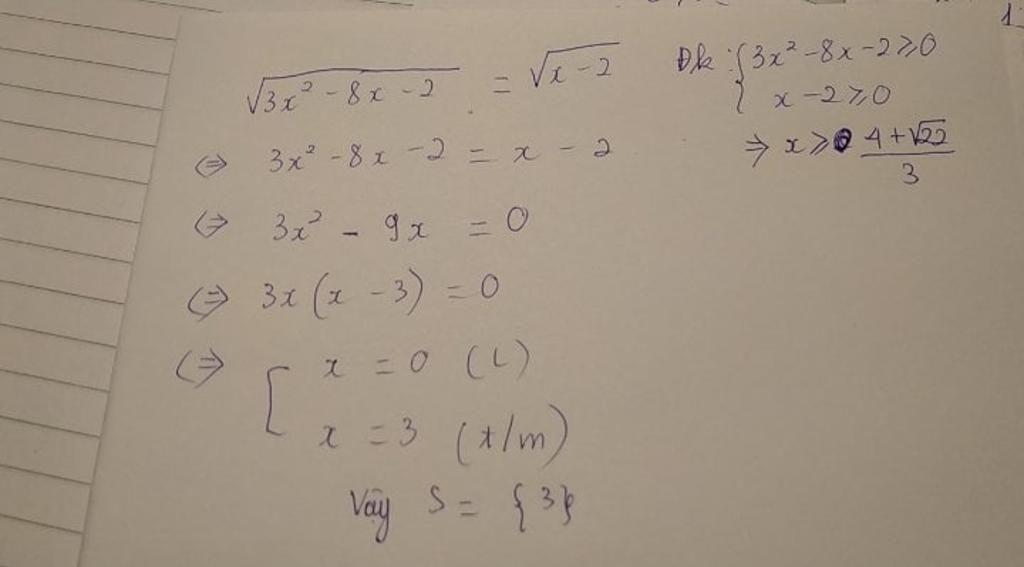 √(3x² - 8x - 2) = √(x - 2)
Đk : { 3x² - 8x - 2 ≥ 0
x - 2 ≥ 0
⇒ x ≥ (4 + √22)/3
⇔ 3x² - 8x - 2 = x - 2
⇔ 3x² - 9x = 0
⇔ 3x (x - 3) = 0
⇔ [ x = 0 (L)
x = 3 (t/m)
Vậy S = {3}